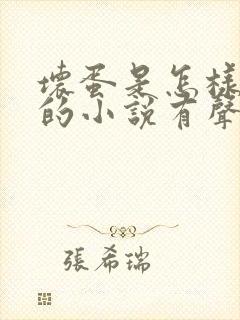 壞蛋是怎樣
的小說有聲
張希瑞